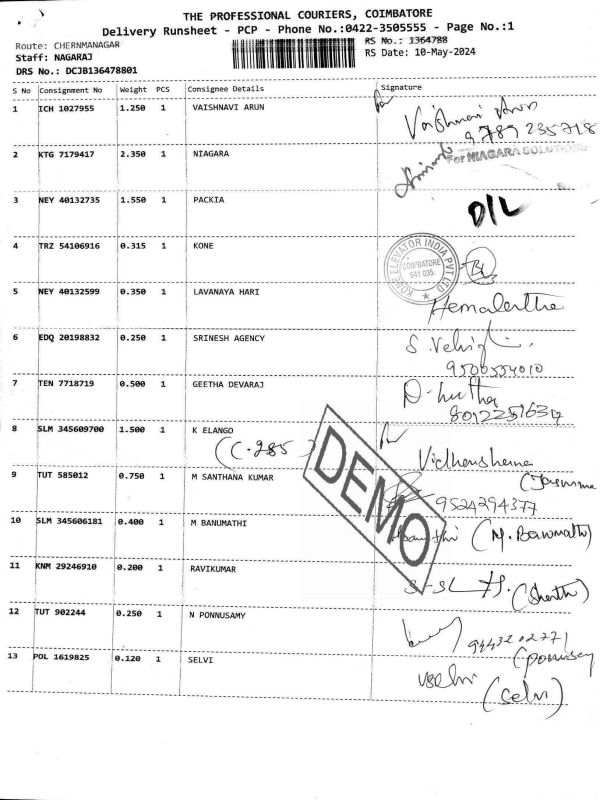 THE PROFESSIONAL COURIERS, COIMBATORE
Delivery Runsheet - PCP - Phone No.:0422-3505555 - Page No.:1
Route: CHERNMANAGAR
RS No.: 1364788
Staff: NAGARAJ
RS Date: 10-May-2024
DRS No.: DCJB136478801
S No Consignment No Weight PCS Consignee Details Signature
1 ICH 1027955 1.250 1 VAISHNAVI ARUN
Vaishnavi Arun
9789235718
2 KTG 7179417 2.350 1 NIAGARA
For NIAGARA SOLUTIONS
3 NEY 40132735 1.550 1 PACKIA D/L
4 TRZ 54106916 0.315 1 KONE
KONE ELEVATOR INDIA PVT LTD
COIMBATORE
641 035.
5 NEY 40132599 0.350 1 LAVANAYA HARI
Hemalatha
6 EDQ 20198832 0.250 1 SRINESH AGENCY
9500554010
7 TEN 7718719 0.500 1 GEETHA DEVARAJ
8 SLM 345609700 1.500 1 K ELANGO
(C-285)
9 TUT 585012 0.750 1 M SANTHANA KUMAR
9524294377
DEMO
10 SLM 345606181 0.400 1 M BANUMATHI
(M. Banumathi)
11 KNM 29246910 0.200 1 RAVIKUMAR
12 TUT 902244 0.250 1 N PONNUSAMY
9443202771
13 POL 1619825 0.120 1 SELVI
(Selvi)